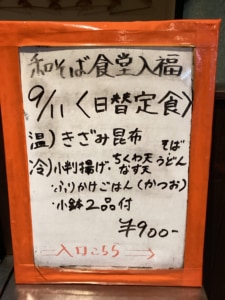 和そば食堂入福
9/11〈日替定食〉
温)きざみ昆布 そば
冷)小判揚げ・ちくわ天 うどん
なす天
・ふりかけごはん(かつお)
・小鉢2品付
¥900-
入口こちら→